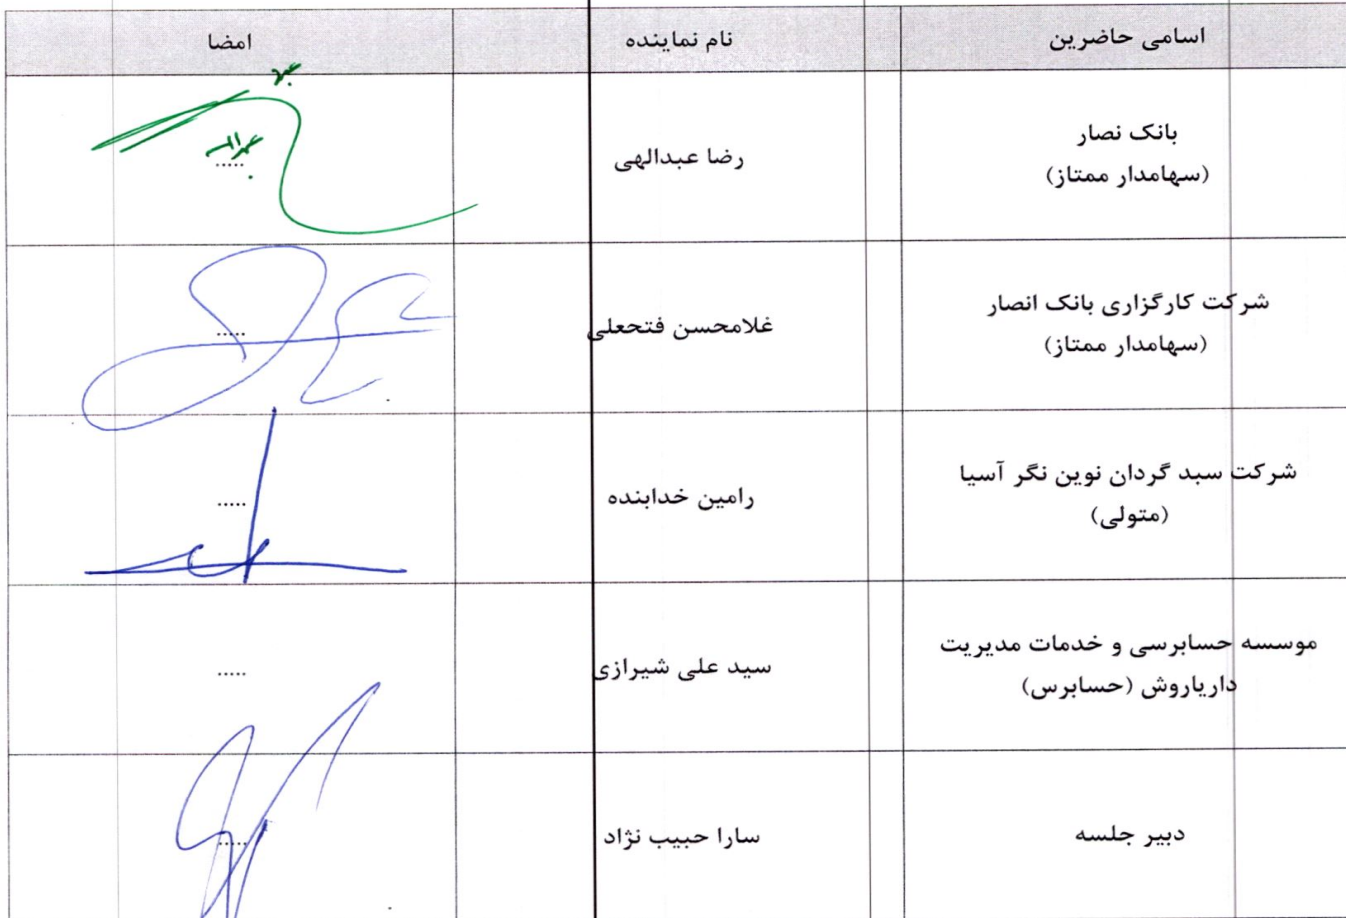 اسامی حاضرین	نام نماینده	امضا
بانک نصار
(سهامدار ممتاز)
رضا عبدالهی
.....
شرکت کارگزاری بانک انصار
(سهامدار ممتاز)
غلامحسن فتحعلی
.....
شرکت سبد گردان نوین نگر آسیا
(متولی)
رامین خدابنده
.....
موسسه حسابرسی و خدمات مدیریت
داریاروش (حسابرس)
سید علی شیرازی
.....
دبیر جلسه
سارا حبیب نژاد
.....